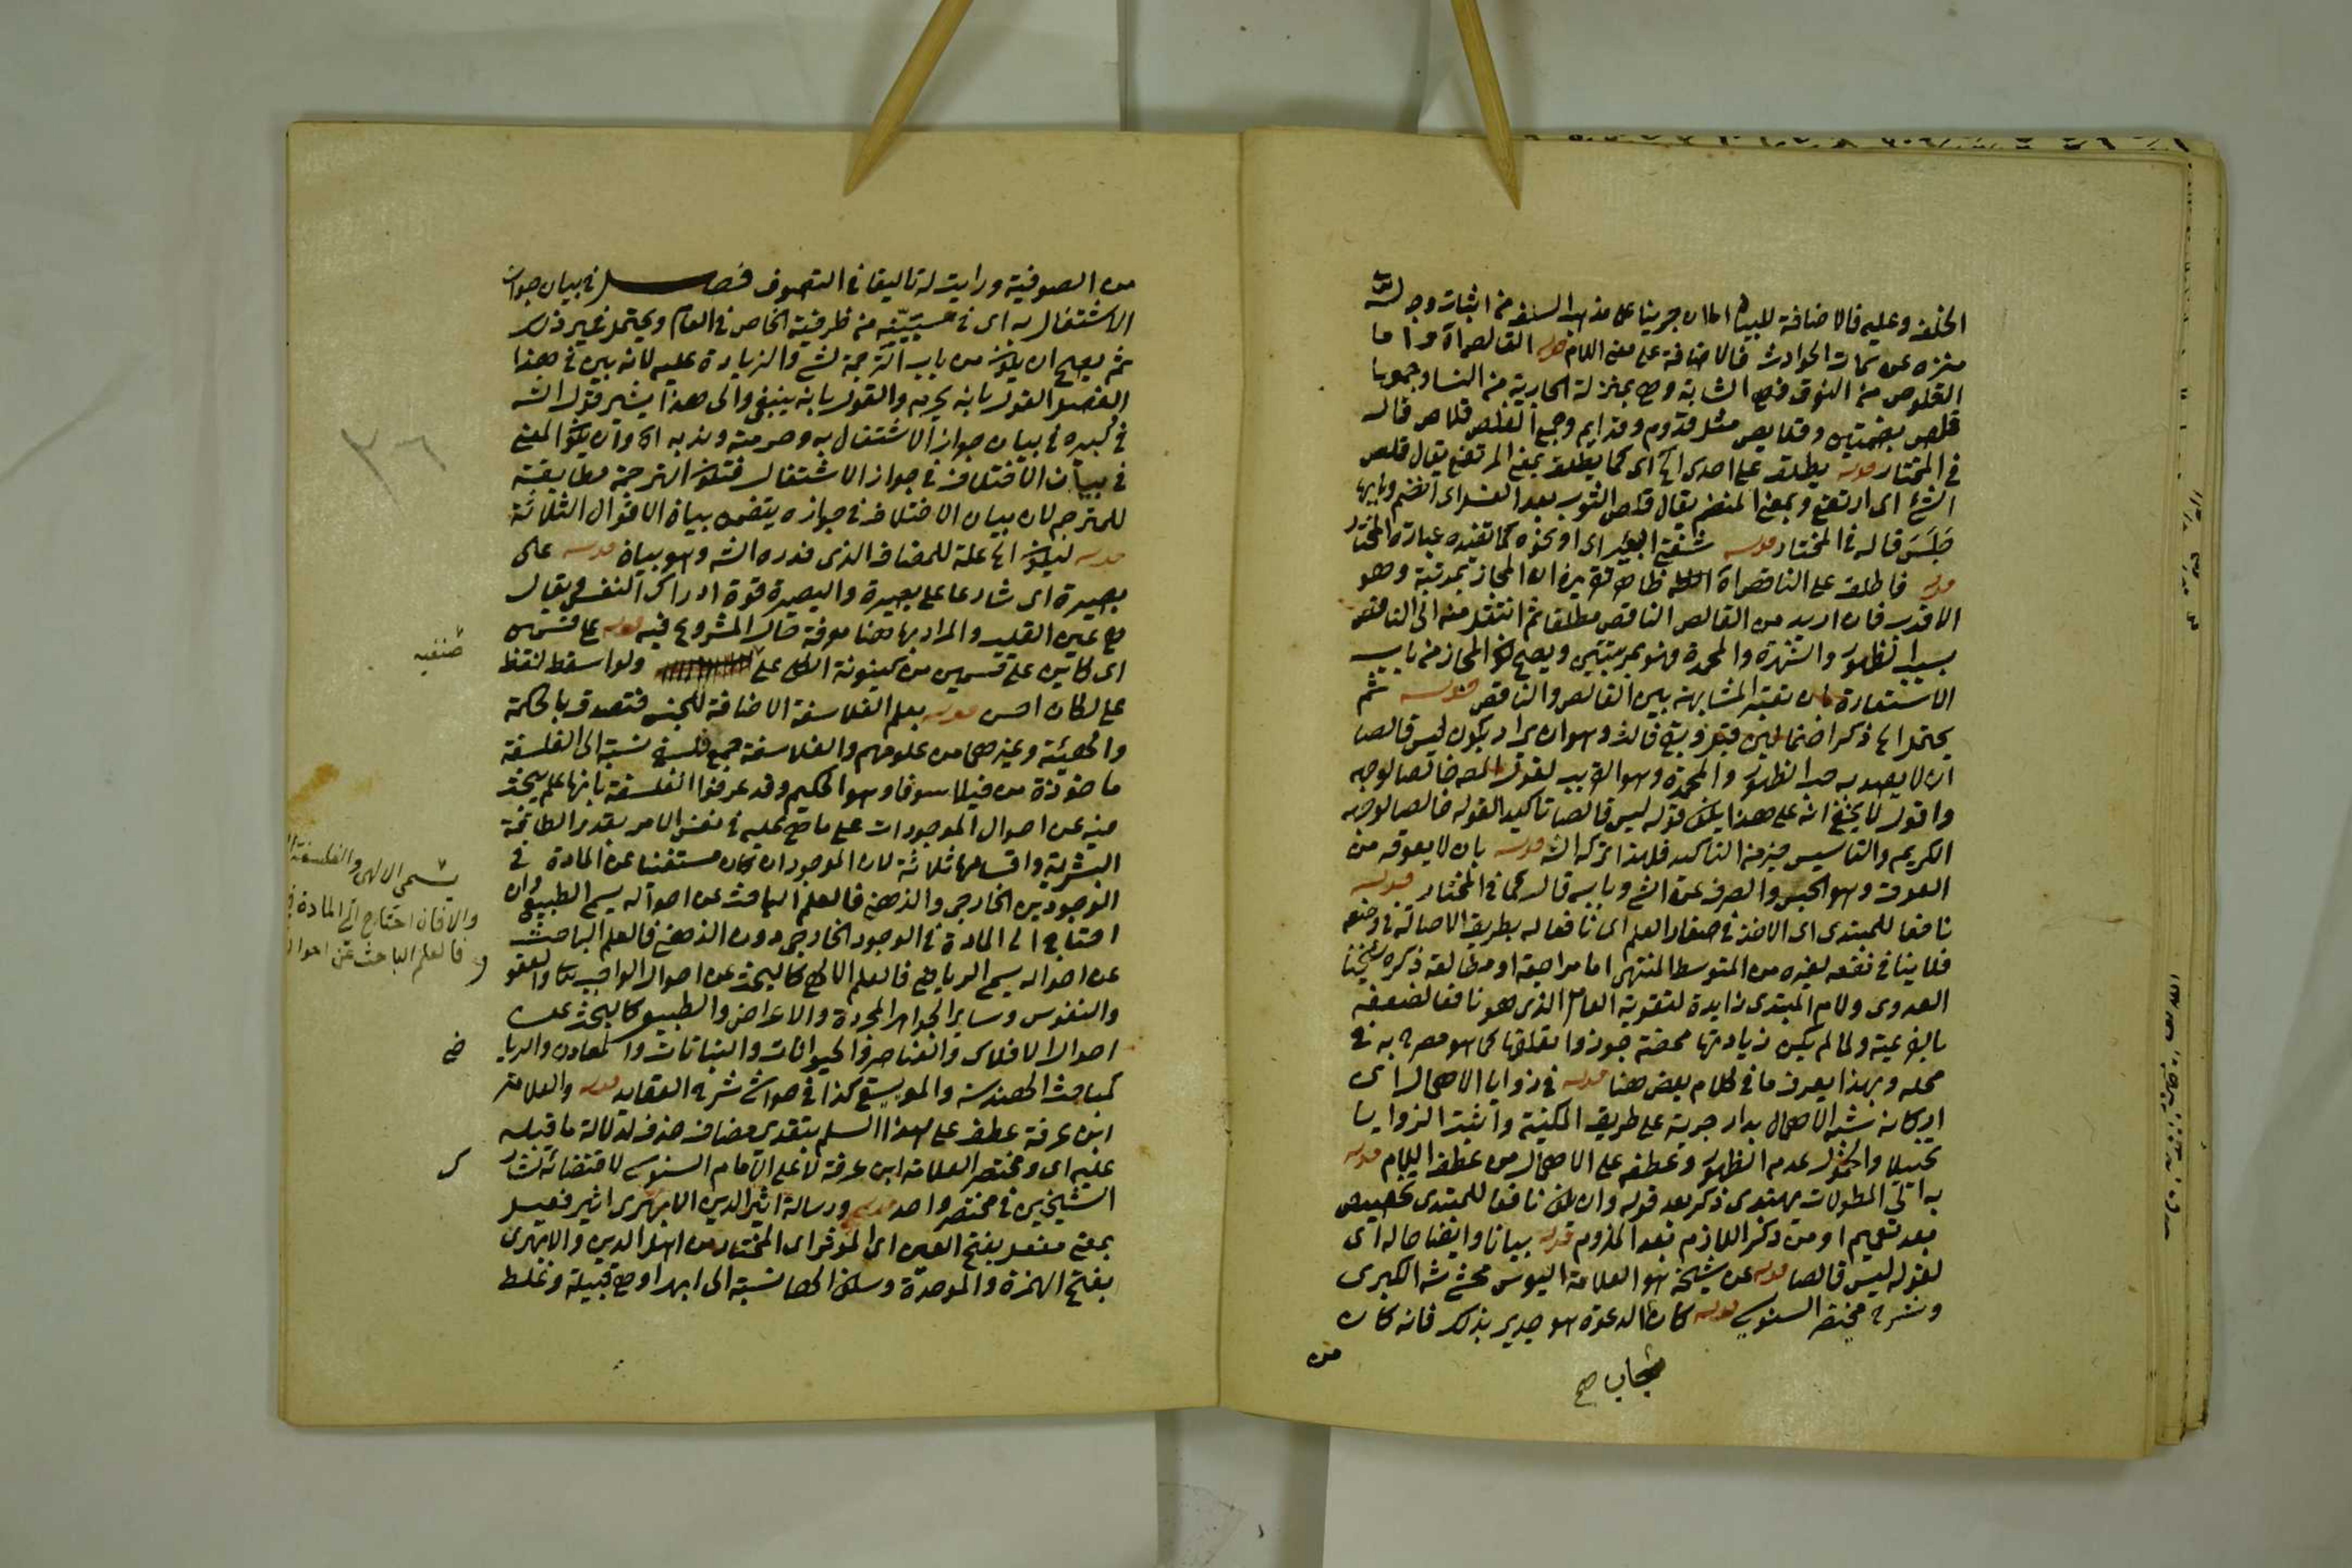 الخلف وعليه فالاضافة للبيان اما ان جرينا على مذهب السلف من اثبات وجه لله
منزه عن سمات الحوادث فالاضافة على معنى اللام قوله القالص اه واما
القلوص من النوق فهى الشابة وهى بمنزلة الجارية من النسا وجمعها
قلص بضمتين وقلايص مثل قدوم وقدايم وجمع القلص قلاص قاله
فى المختار قوله يطلق على احدى اى كما يطلق بمعنى المرتفع يقال قلص
الشئ اى ارتفع وبمعنى المنضم يقال قلص الثوب بعد الغسل اى انضم وبابهما
جلس قاله فى المختار قوله شفة البعير اى او نحوه كما تفيده عبارة المختار
قوله فاطلق على الناقص اه ظاهر فى ان المجاز بمرتبة وهو
الاقرب فان اريد من القالص الناقص مطلقا ثم انتقل منه الى الناقص
بسبب الظهور والشهرة والمحمدة فهو بمرتبتين ويصح كون المجاز من باب
الاستعارة بان تعتبر المشابهة بين القالص والناقص قوله ثم
يحتمل اى ذكر احتمالين وبقى ثالث وهو ان يراد بكون ليس قالصا
ان لا يصد به حب الظهور والمحمدة وهو القريب لقول المصه خالصا لوجه
واقول لا يخفى انه على هذا يكون قوله ليس قالصا تاكيدا لقوله خالصا لوجه
الكريم والتاسيس خير من التاكيد فلهذا تركه الش قوله بان لا يعوقه من
العوق وهو الحبس والصرف عن الشئ وبابه قال كما فى المختار قوله
نافعا للمبتدى اى الاخذ فى صغار العلم اى نافعا له بطريق الاصالة فى وضعه
فلا ينافى نفعه لغيره من المتوسط والمنتهى اما مراجعة او مطالعة ذكره شيخنا
العدوى ولام المبتدى زايدة لتقوية العامل الذى هو نافعا لضعفه
بالفرعية ولما لم يكن زيادتها محضة جوزوا تعلقها كما هو مصرح به فى
محله وبهذا يعرف ما فى كلام بعض هنا قوله فى زوايا الاهمال اى
اركانه شبه الاهمال بدار خربة على طريق المكنية واثبت الزوايا
تخييلا والخمول عدم الظهور وعطفه على الاهمال من عطف اللازم قوله
به الى المطولات يهتدى ذكر بعد قوله وان يكون نافعا للمبتدى تخصيص
بعد تعميم او من ذكر اللازم بعد الملزوم قوله بيانا وايضاحا له اى
لقوله ليس قالصا قوله عن شيخه هو العلامة اليوسى محشى ش الكبرى
وشرح مختصر السنوسى قوله كان الدعوة هو جدير بذلك فانه كان
من
مجاب صح
من الصوفية ورايت له تاليفا فى التصوف فصل فى بيان جواز
الاشتغال به اى فى من ظرفية الخاص فى العام ويحتمل غير ذلك
ثم يصح ان يكون من باب الترجمة لشئ والزيادة عليه لانه بين فى هذا
الفصل القول بانه يحرم والقول بانه ينبغى والى هذا يشير قول الش
فى كبيره فى بيان جواز الاشتغال به وحرمته وندبه اه وان يكون المعنى
فى بيان الاختلاف فى جواز الاشتغال فتكون الترجمة مطابقة
للمترجم لان بيان الاختلاف فى جوازه يتضمن بيان الاقوال الثلاثة
قوله ليكون اه علة للمضاف الذى قدره الش وهو بيان قوله على
بصيرة اى شارعا على بصيرة والبصيرة قوة ادراك النفس ويقال
هى عين القلب والمراد بها هنا معرفة حال المشروع فيه قوله على قسمين
اى كاين على قسمين من كينونة الكل على ولو اسقط لفظ
صنفيه
على لكان احسن قوله بعلم الفلاسفة الاضافة للجنس فتصدق بالحكمة
والهيئة وغيرهما من علومهم والفلاسفة جمع فلسفى نسبة الى الفلسفة
ماخوذة من فيلا سوفا وهو الحكيم وقد عرفوا الفلسفة بانها علم يبحث
فيه عن احوال الموجودات على ما هى عليه فى نفس الامر بقدر الطاقة
البشرية واقسامها ثلاثة لان الموجود ان كان مستغنيا عن المادة فى
الوجودين الخارجى والذهنى فالعلم الباحث عن احواله يسمى الطبيعى وان
احتاج الى المادة فى الوجود الخارجى دون الذهنى فالعلم الباحث
يسمى الالهى والفلسفة
والا فان احتاج الى المادة
فالعلم الباحث عن احوال
عن احواله يسمى الرياضى فالعلم الالهى كالبحث عن احوال الواجب تعالى والعقول
والنفوس وساير الجواهر المجردة والاعراض والطبيعى كالبحث عن
احوال الافلاك والعناصر والحيوانات والنباتات والمعادن والريا
ضى
كمباحث الهندسة والموسيقى كذا فى حواشى شرح العقايد قوله والعلامة
ابن عرفة عطف على هذا السلم بتقدير مضاف حذف لدلالة ما قبله
عليه اى ومختصر العلامة ابن عرفة لا على الامام السنوسى لاقتضائه تشار
ك
الشيخين فى مختصر واحد قوله ورسالة اثير الدين الابهرى اثير فعيل
بمعنى مفعل بفتح العين اى الموثر اى المختار من اهل الدين والابهرى
بفتح الهمزة والموحدة وسكون الها نسبة الى ابهر اوهى قبيلة وغلط
٣٦